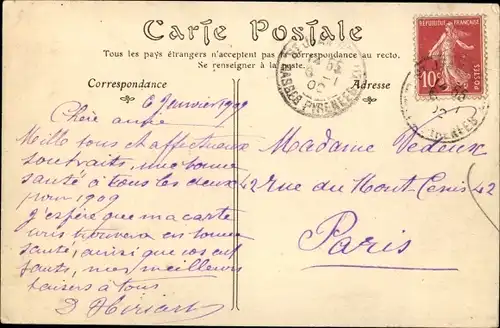 Carte Postale
Tous les pays étrangers n'acceptent pas la correspondance au recto.
Se renseigner à la poste.
Correspondance
Adresse
RÉPUBLIQUE FRANÇAISE
10c
POSTES
BASSES PYRENEES
6 Janvier 1909
Chère amie
Mille bons et affectueux
souhaits, une bonne
santé à tous les deux
pour 1909
J'espère que ma carte
vous trouvera en bonne
santé, ainsi que vos enf
fants, mes meilleurs
baisers à tous
D Hiriart
Madame Dedeux
42 rue du Mont-Cenis 42
Paris